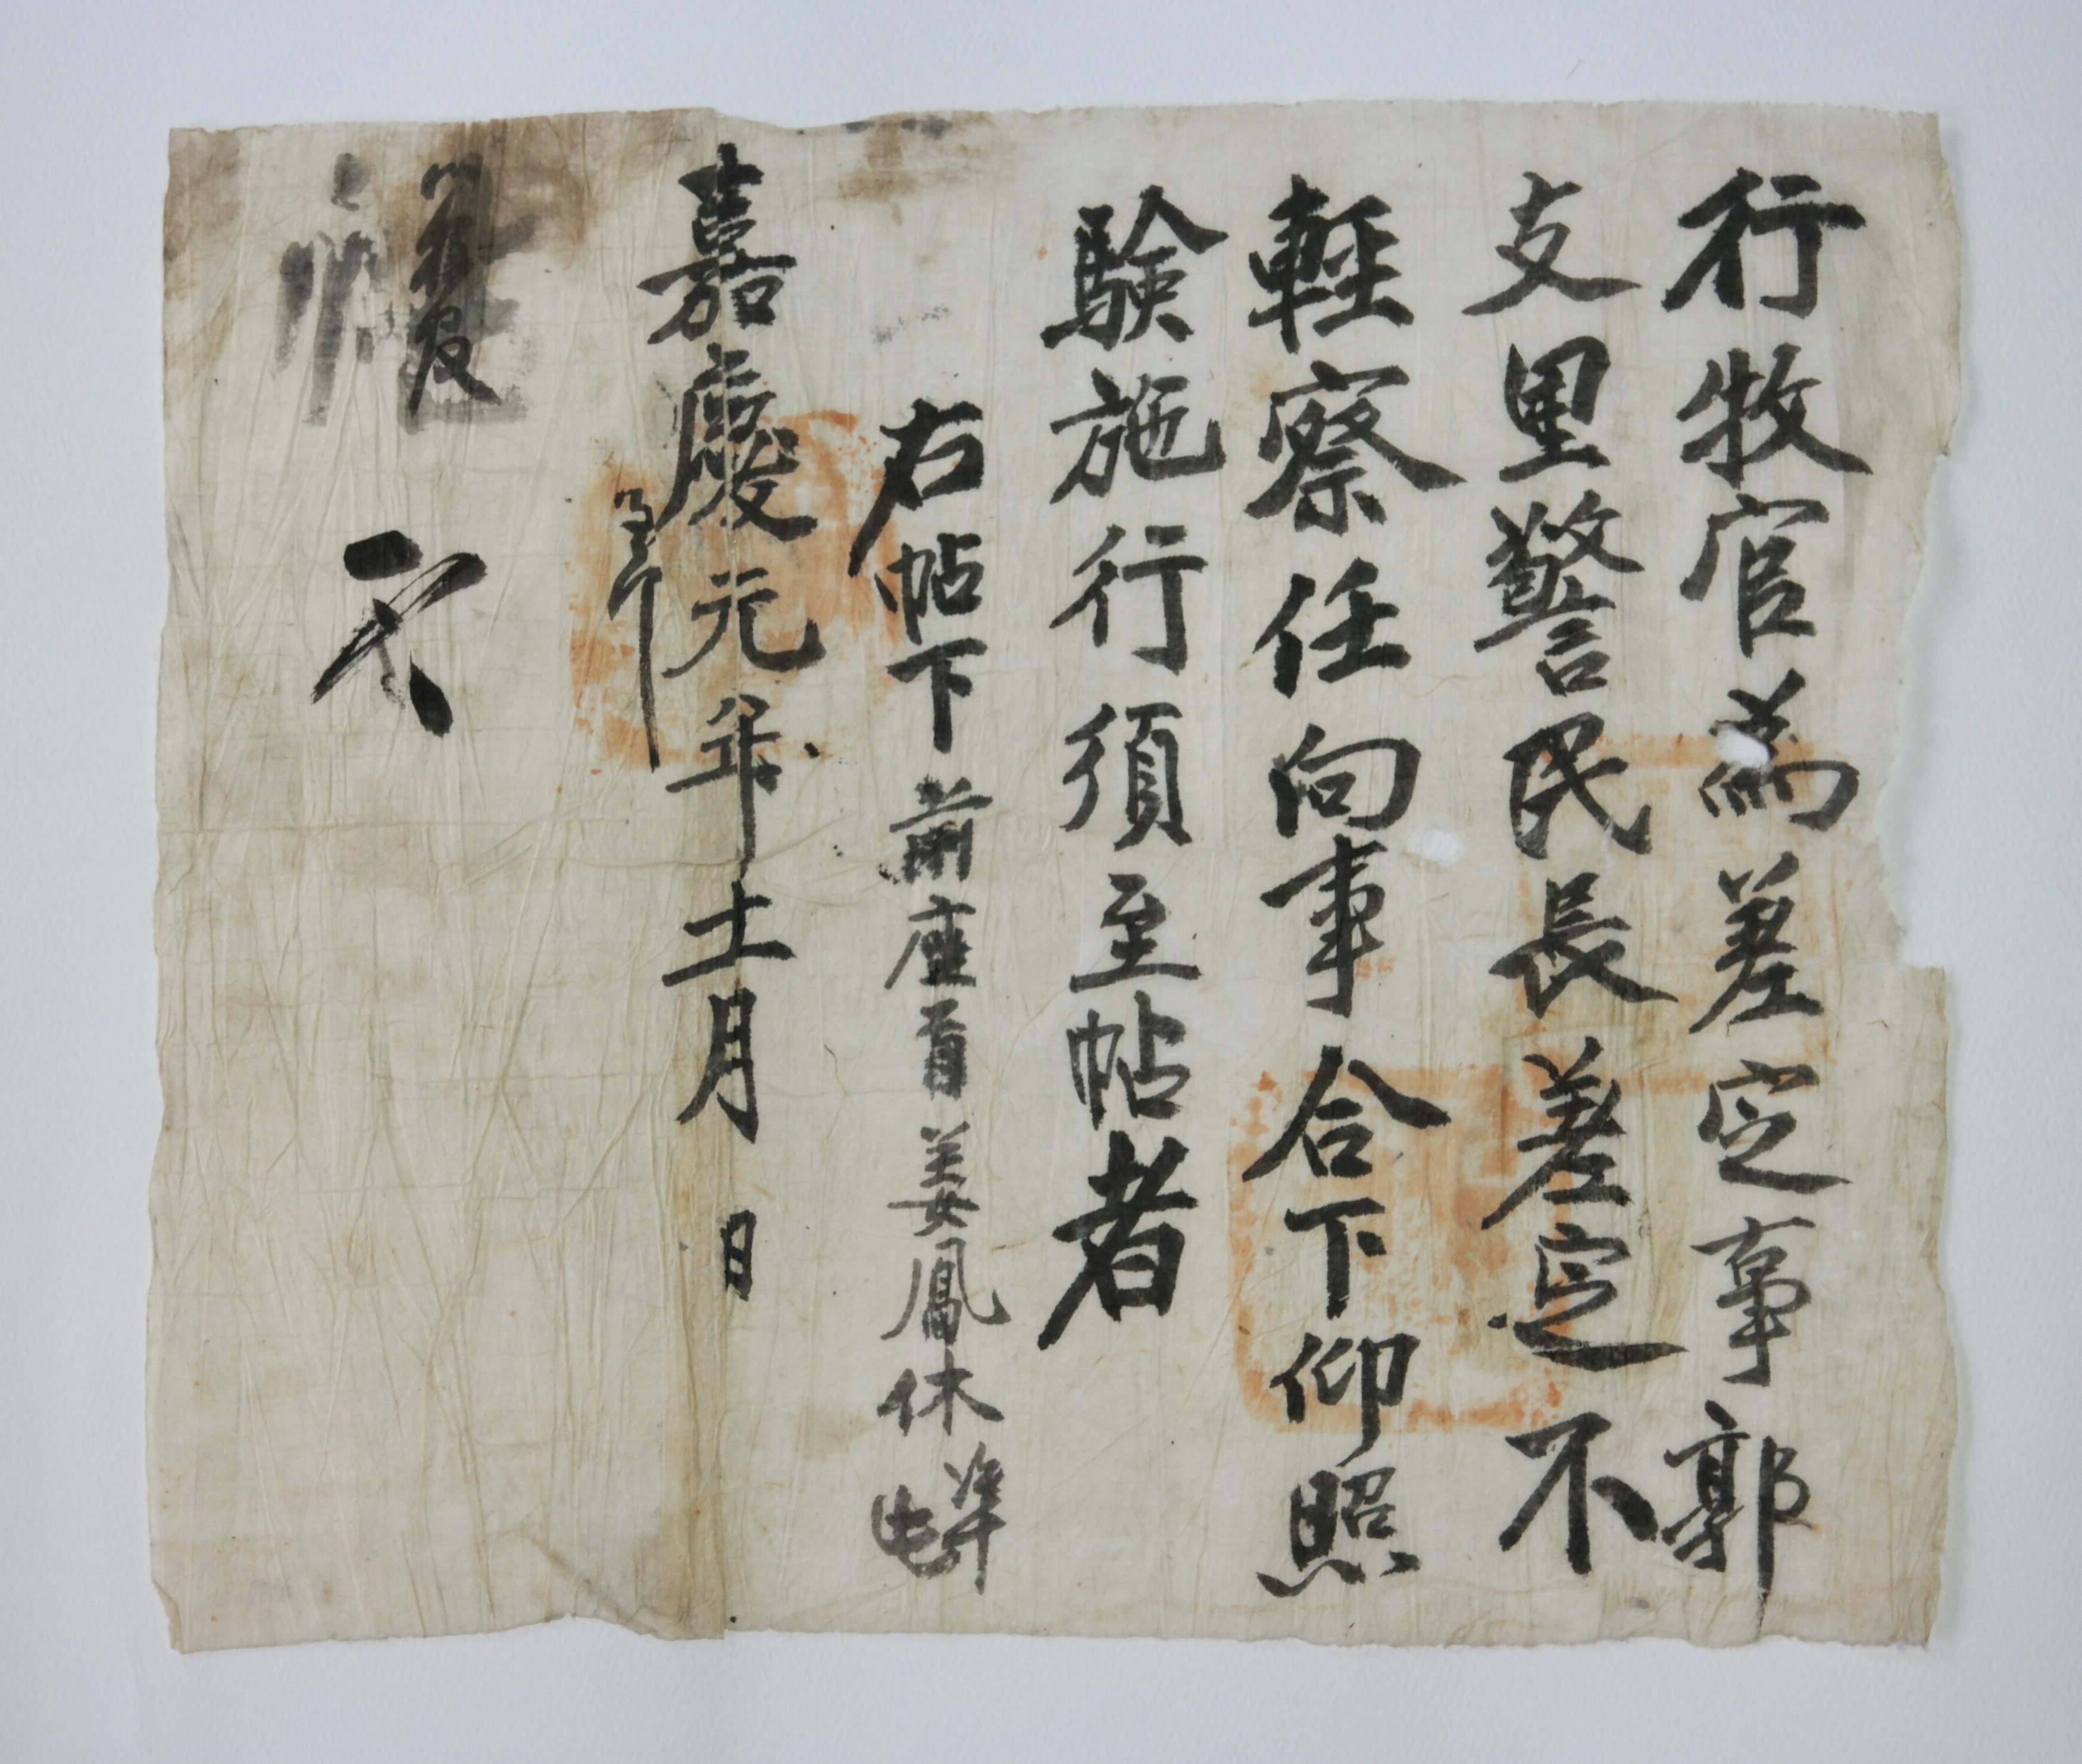 行牧官爲差定事郭
支里警民長差定不
輕察任向事合下仰照
驗施行須至帖者
右帖下前座首姜鳳休準此
嘉慶元年十一月 日